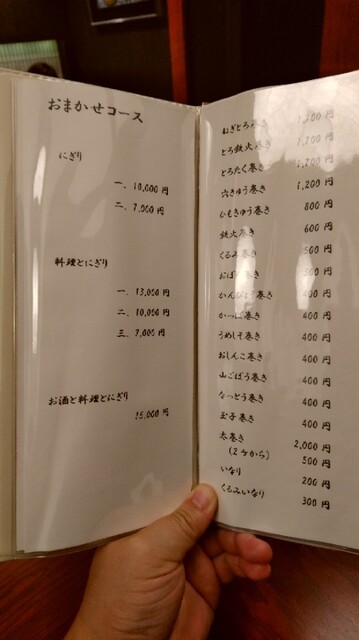 おまかせコース
にぎり
一、10,000円
二、7,000円
料理とにぎり
一、13,000円
二、10,000円
三、7,000円
お酒と料理とにぎり
15,000円
ねぎとろ巻き 円
とろ鉄火巻き 円
とろたく巻き 円
穴きゅう巻き 1,200円
ひもきゅう巻き 800円
鉄火巻き 600円
くるみ巻き 500円
おぼろ巻き 円
かんぴょう巻き 400円
かっぱ巻き 400円
うめしそ巻き 400円
おしんこ巻き 400円
山ごぼう巻き 400円
なっとう巻き 400円
玉子巻き 400円
太巻き 2,000円
(2ケから) 500円
いなり 200円
くるみいなり 300円